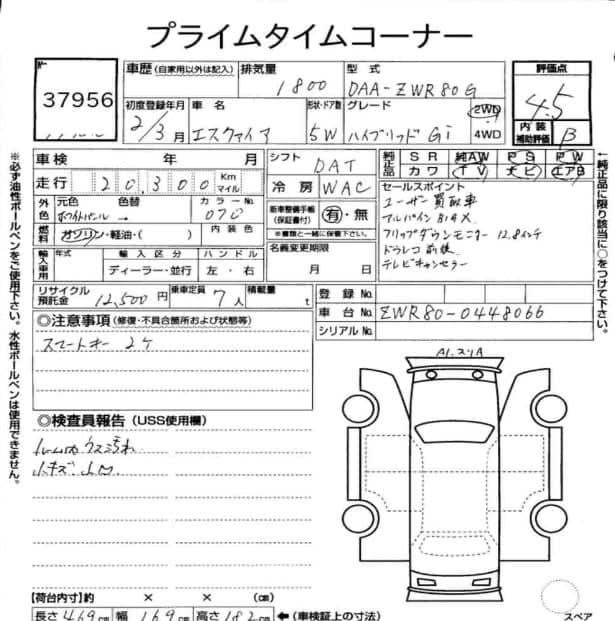 プライムタイムコーナー
37956
車歴 (自家用以外は記入) 排気量 型式 評価点
1800 DAA-ZWR80G 4.5
初度登録年月 車名 形状・ドア数 グレード 2WD
2/3月 エスクァイア 5W ハイブリッド Gi 4WD 内装補助評価 B
車検 年 月 シフト DAT 純正品 SR 純AW PS PW
カワ TV ナビ エアB
走行 20,300 Km マイル 冷房 WAC
外色 元色 色替 カラーNo. 新車整備手帳 (保証書付) 有・無
ホワイトパール → 070 ※書類と一緒に保管下さい。
燃料 ガソリン・軽油・( ) 内装色 名義変更期限
月 日
輸入車用 年式 輸入区分 ハンドル
ディーラー・並行 左・右
セールスポイント
ユーザー買取車
アルパインBIGX
フリップダウンモニター 12.8インチ
ドラレコ前後
テレビキャンセラー
リサイクル預託金 12,500円 乗車定員 7人 積載量 t
登録No.
車台No. ZWR80-0448066
シリアルNo.
◎注意事項 (修復・不具合箇所および状態等)
スマートキー 2ケ
◎検査員報告 (USS使用欄)
ルーム内ウス汚れ
小キズ
【荷台内寸】約 × × (cm)
長さ 469cm 幅 169cm 高さ 182cm ←(車検証上の寸法)
スペア
※必ず油性ボールペンをご使用下さい。水性ボールペンは使用できません。
←純正品に限り該当に○をつけて下さい。